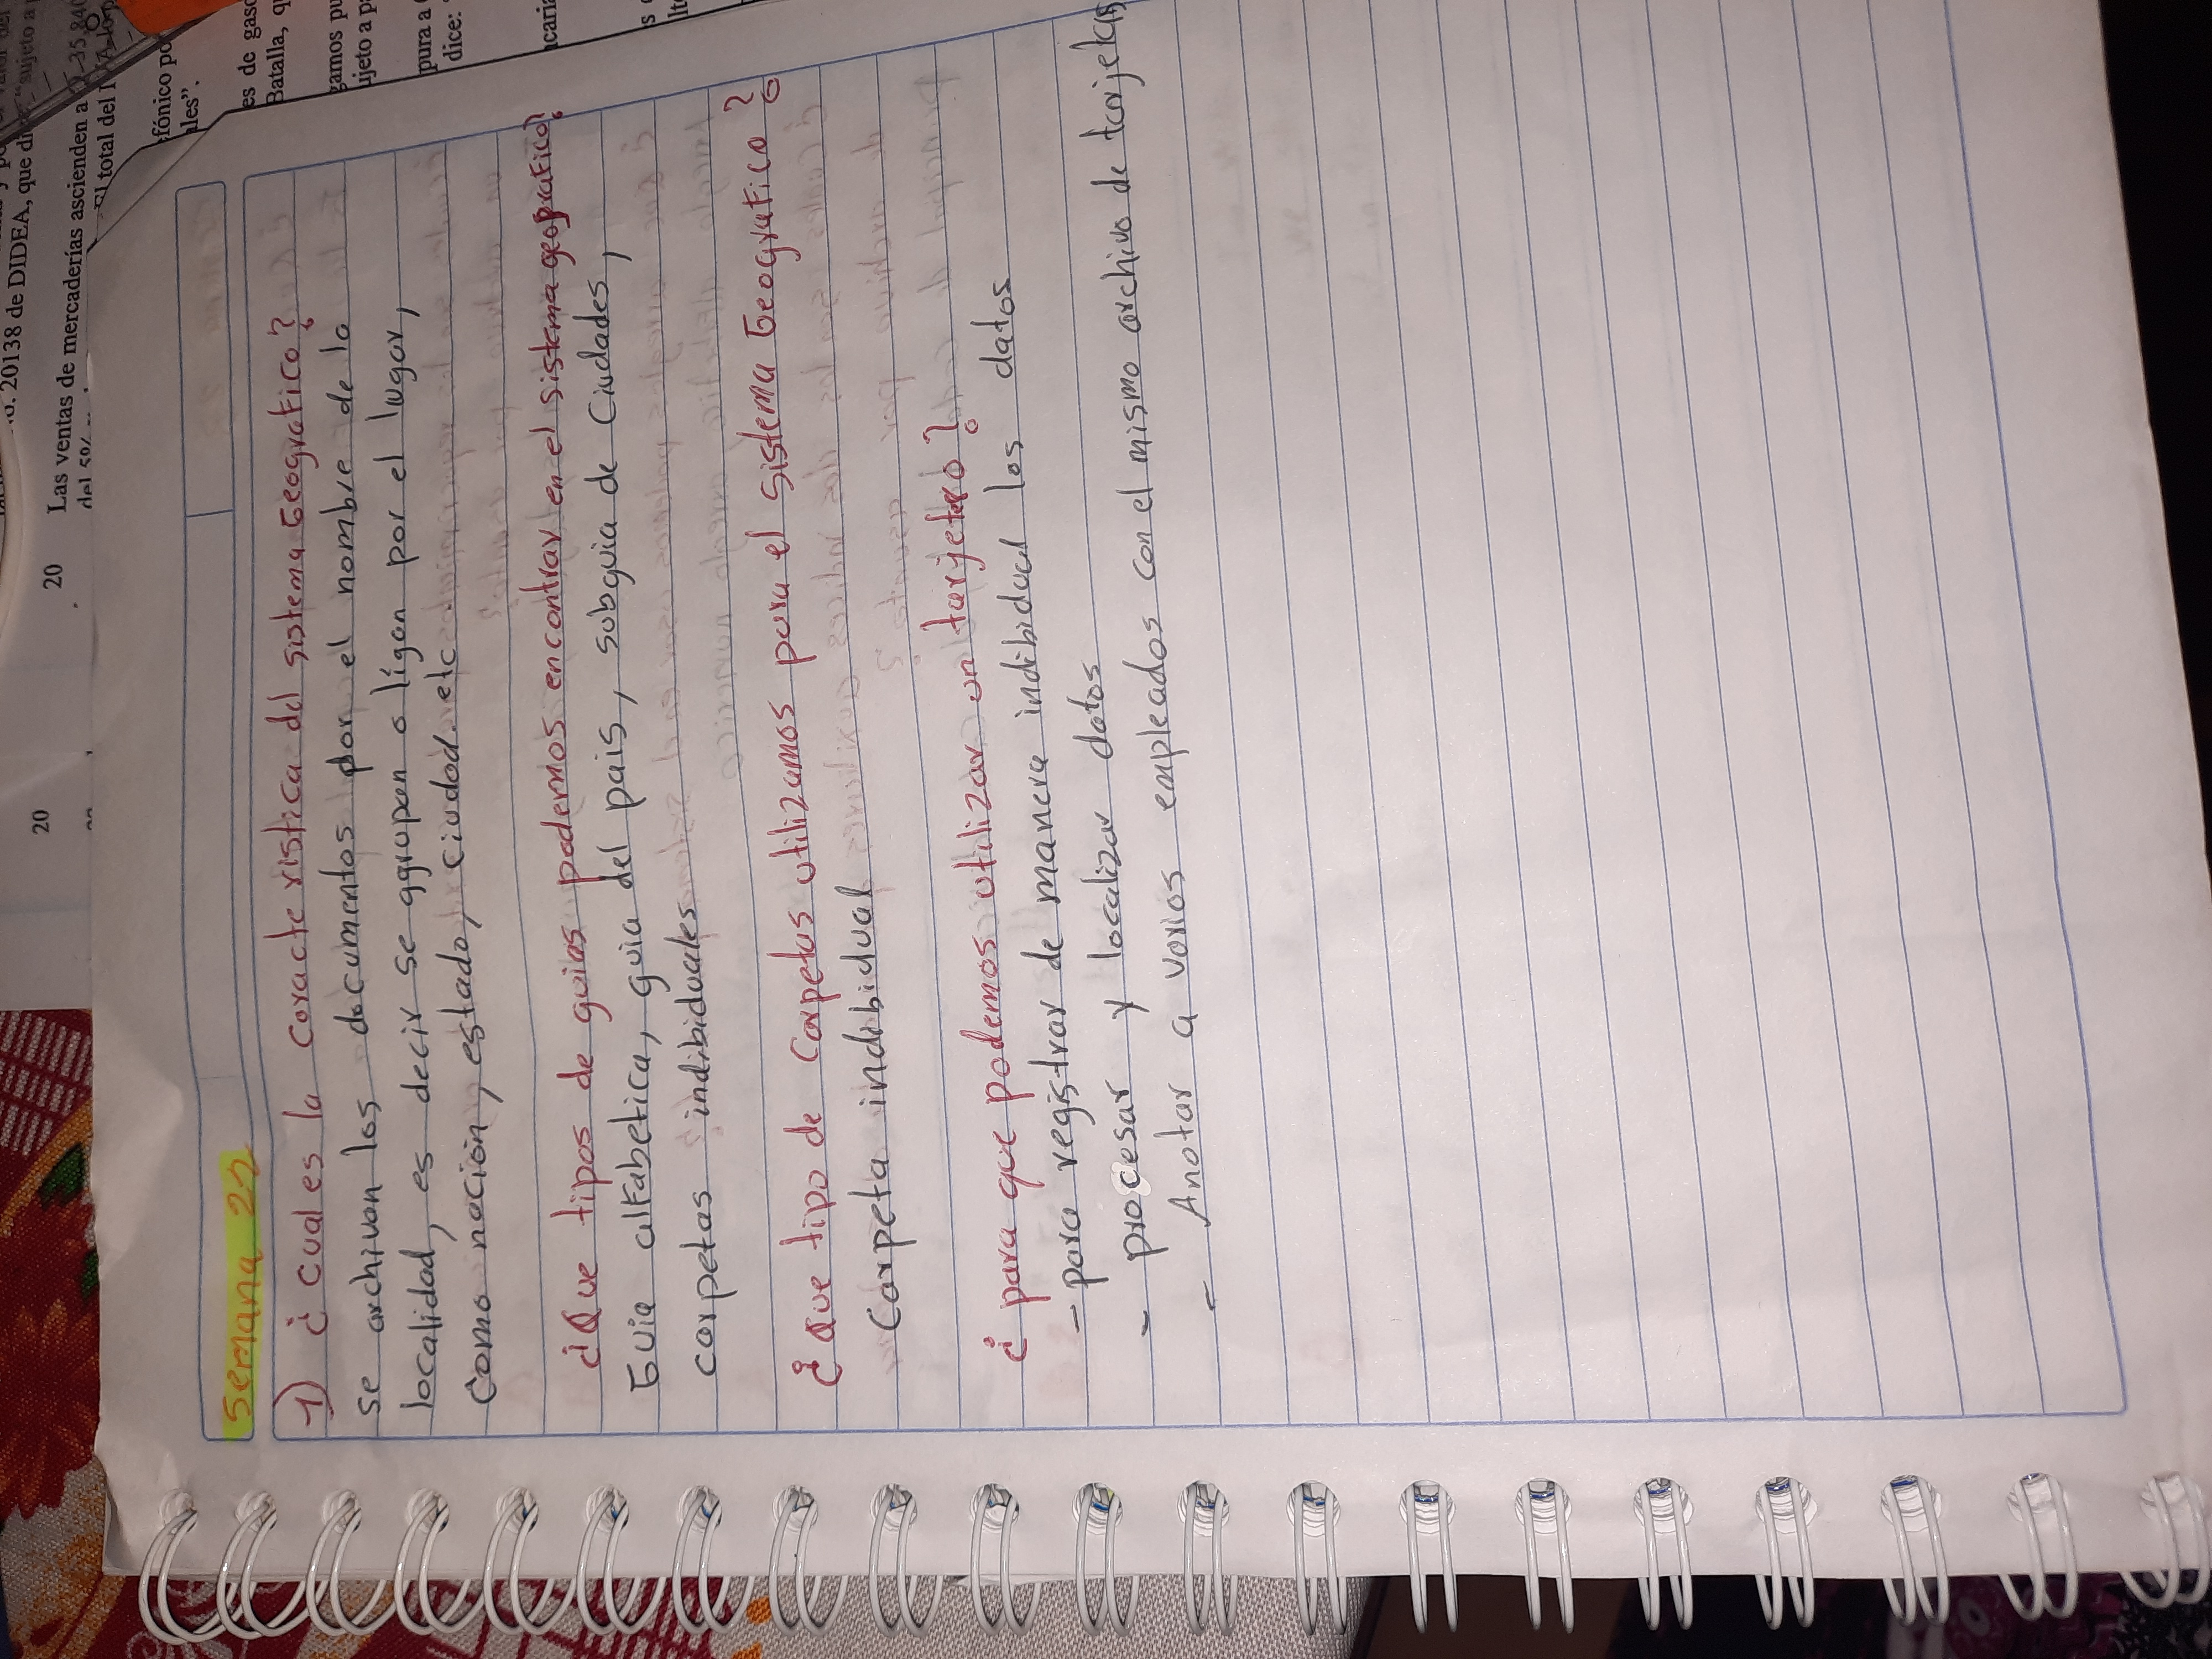 Semana 22
1) ¿ Cual es la caracteristica del sistema Geografico?
se archivan los documentos por el nombre de la
localidad, es decir se agrupan o ligan por el lugar,
como nacion, estado, ciudad. etc
¿Que tipos de guias podemos encontrar en el sistema geografico?
Guia alfabetica, guia del pais, subguia de Ciudades,
carpetas indibiduales
¿Que tipo de carpetas utilizamos para el sistema Geografico?
Carpeta indibidual
¿para que podemos utilizar un tarjetero?
- para registrar de manera indibidual los datos
- procesar y localizar datos
- Anotar a varios empleados con el mismo archivo de tarjetas
No. 20138 de DIDEA, que
20 Las ventas de mercaderías ascienden a
El total del
20
efónico
ales".
es de
Batalla,
gamos
ujeto a
pura a
dice: